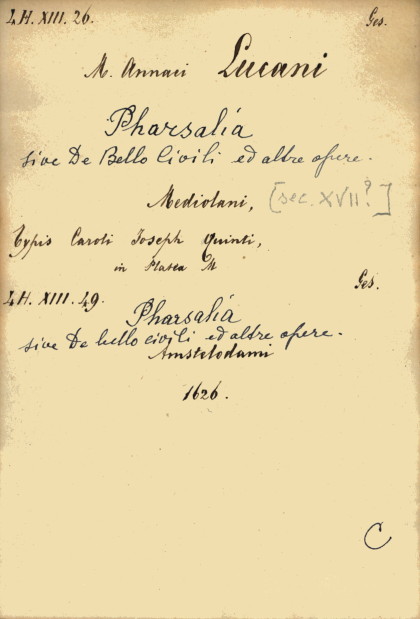 4H. XIII. 26. Ges.
M. Annaei Lucani
Pharsalia
sive De Bello Civili ed altre opere.
Mediolani, [sec. XVII?]
Typis Caroli Joseph Quinti,
in Platea M
4H. XIII. 49. Ges.
Pharsalia
sive De bello civili ed altre opere.
Amstelodami
1626.
C